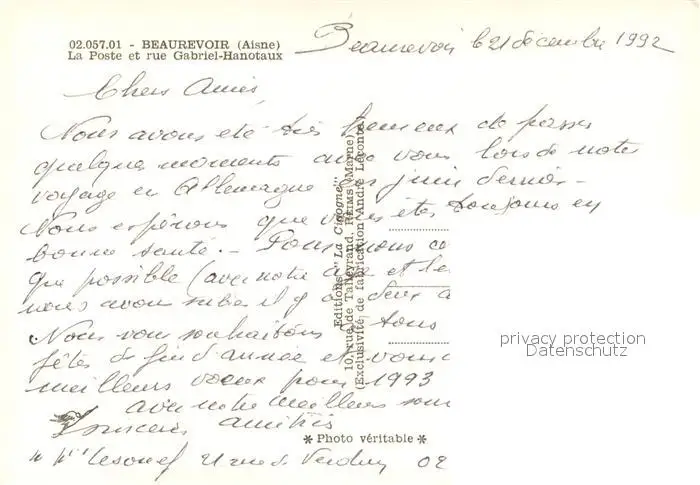 02.057.01 - BEAUREVOIR (Aisne)
La Poste et rue Gabriel-Hanotaux
Beaurevoir le 21 décembre 1992
Chers Amis,
Nous avons été très heureux de passer
quelques moments avec vous lors de notre
voyage en Allemagne en juin dernier -
Nous espérons que vous êtes toujours en
bonne santé. - Pour nous co
que possible (avec notre âge et le
nous avons subies il y a deux a
Nous vous souhaitons tous
fêtes de fin d'année et vous
meilleurs voeux pour 1993
avec notre meilleurs sou
sincères amitiés
21 rue de Verdun 02
Editions "La Cigogne"
10, rue de Talleyrand, REIMS (Marne)
(Exclusivité de fabrication André Leconte)
* Photo véritable *
privacy protection
Datenschutz